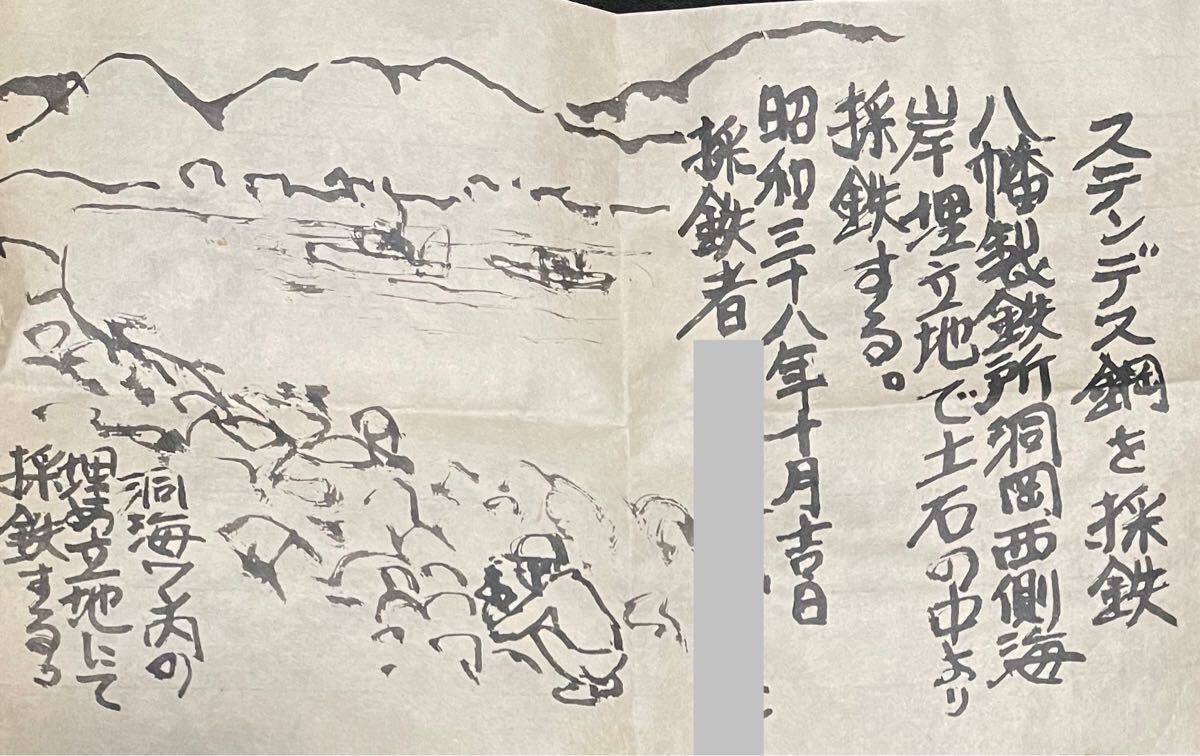 ステンデス鋼を採鉄
八幡製鉄所洞岡西側海
岸埋立地で土石の中より
採鉄する。
昭和三十八年十月吉日
採鉄者
洞海ワン内の
埋め立地にて
採鉄する